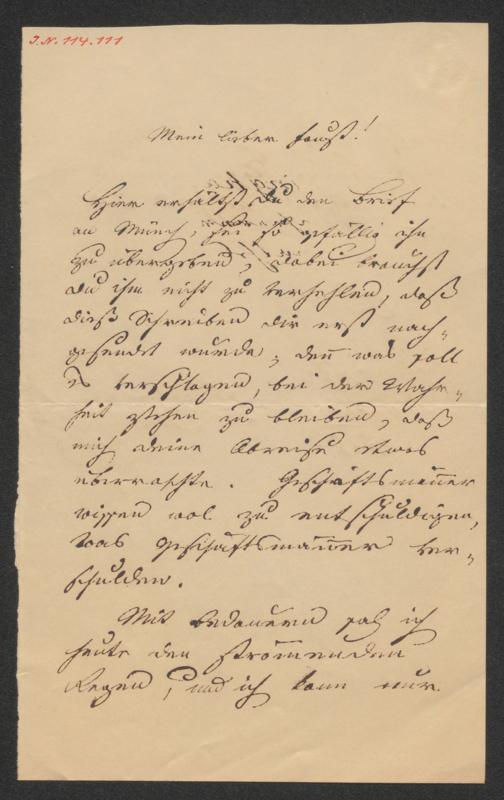 J.N. 114.111
Mein lieber Faust!
Hier erhältst du den Brief
an Münch, sei so gefällig ihn
zu übergeben, dabei brauchst
du ihm nicht zu verhehlen, daß
dieß Schreiben dir erst nach-
gesendet wurde; deñ was soll
es verschlagen, bei der Wahr-
heit stehen zu bleiben, daß
mich deine Abreise etwas
überraschte. Geschäftsmäñer
wissen wol zu entschuldigen,
was Geschäftsmäñer ver-
schulden.
Mit Bedauern sah ich
heute den strömenden
Regen, und ich kann nur